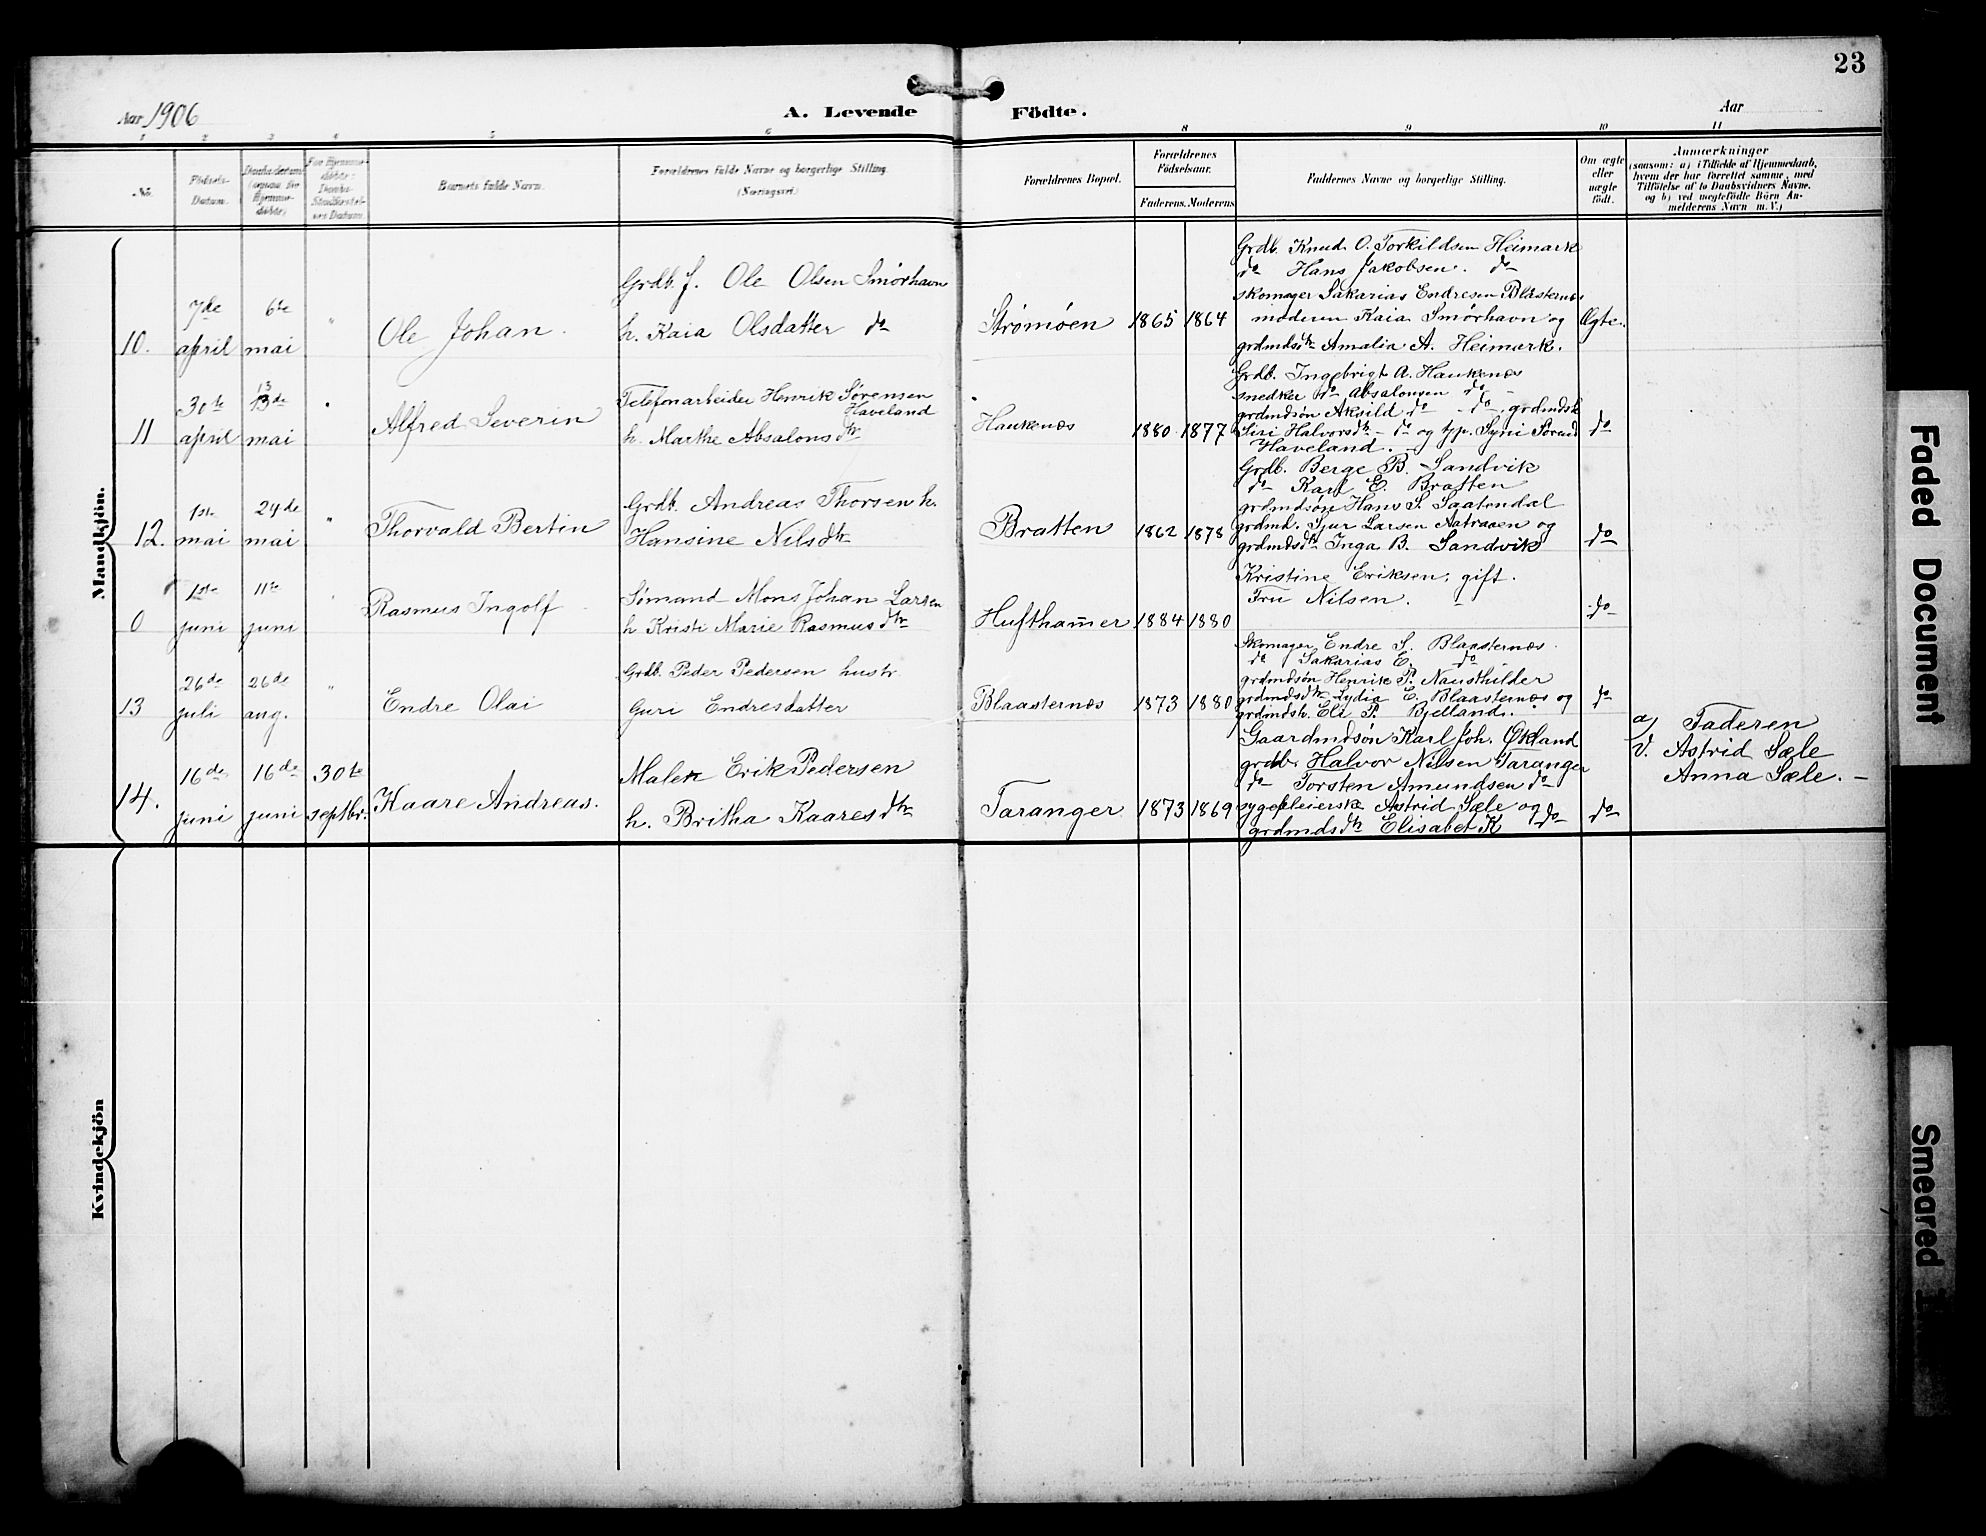 23
Aar 1906
A. Levende Födte.
Aar
1 2 3 4 5 6 8 9 10 11
No.
Födsels-Datum.
Daabsdatum (ogsaa for Hjemmedöbte)
For Hjemmedöbte: Daabs Stadfæstelses Datum.
Barnets fulde Navn.
Forældrenes fulde Navne og borgerlige Stilling (Næringsvei)
Forældrenes Bopæl.
Forældrenes Födselsaar.
Faderens. Moderens.
Faddernes Navne og borgerlige Stilling.
Om ægte eller uægte født.
Anmærkninger
(saasom: a) i Tilfælde af Hjemmedaab,
hvem der har forrettet samme, med
Tilföielse af to Daabsvidners Navne,
og b) ved uægtefödte Börn An-
melderens Navn m. V.)
Mandkjön.
10.
7de april
6te mai
"
Ole Johan.
Grdb. f. Ole Olsen Smørhavn
h. Kaia Olsdatter do
Strømøen
1865 1864
Grdb. Knud O. Torkildsen Heimark
do Hans Jakobsen. do
skomager Sakarias Endresen Blåsternæs
moderen Kaia Smørhavn og
grdmdsdtr Amalia A. Heimark.
Ægte.
11
30te april
13de mai
Alfred Severin
Telefonarbeider Henrik Sørensen
Haveland
h. Marthe Absalonsdtr
Haukenæs
1880 1877
Grdb. Ingebrigt A. Haukenæs
snedker do Absalonsen do
grdmdsøn Aksild do - do, grdmdsk
Siri Halvorsdtr - do og
Haveland.
do
12.
1ste mai
24de mai
"
Thorvald Bertin
Grdb. Andreas Thorsen h.
Hansine Nilsdtr
Bratten
1862 1878
Grdb. Berge B. Sandvik
do Karl E. Bratten
grdmdsøn Hans S. Saatendal
grdmd. Sjur Larsen Aatraaen og
grdmdsdtr Inga B. Sandvik
do
0
1ste juni
11te juni
Rasmus Ingolf
Sømand Mons Johan Larsen
h Kristi Marie Rasmusdtr
Hufthamer
1884 1880
Kristine Eriksen, gift.
Fru Nilsen.
do
13
26de juli
26de aug.
"
Endre Olai
Grdb. Peder Pedersen hustr
Guri Endresdatter
Blaasternæs
1873 1880
Skomager Endre S. Blaasternæs
do Sakarias E. do
grdmdsøn Henrik P. Nausthilder
grdmdsdtr Lydia E. Blaasternæs og
grdmdsk. Eli P. Bjelland.
do
14.
16de juni
16de juni
30te septbr.
Kaare Andreas.
Maler Erik Pedersen
h. Britha Kaaresdtr
Taranger
1873 1869
Gaardmdsøn Karl Joh. Økland
grdb. Halvor Nilsen Taranger
do Torsten Amundsen do
sygepleierske Astrid Sæle og
grdmdsdtr Elisabet K do
do
a) Faderen
V. Astrid Sæle
Anna Sæle. -
Kvindekjön
Faded Document
Smeared